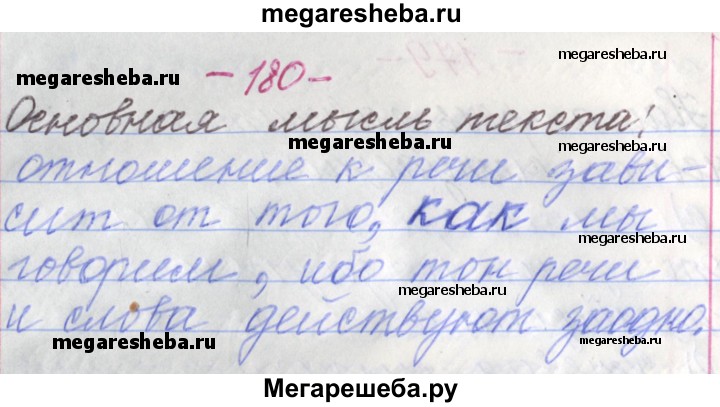 megaresheba.ru
megaresheba.ru
megaresheba.ru
- 180 -
Основная мысль текста:
megaresheba.ru
отношение к речи зави-
сит от того, как мы
megaresheba.ru
говорим, ибо тон речи
megaresheba.ru
и слова действуют заодно.
megaresheba.ru
megaresheba.ru
Мегарешеба.ру